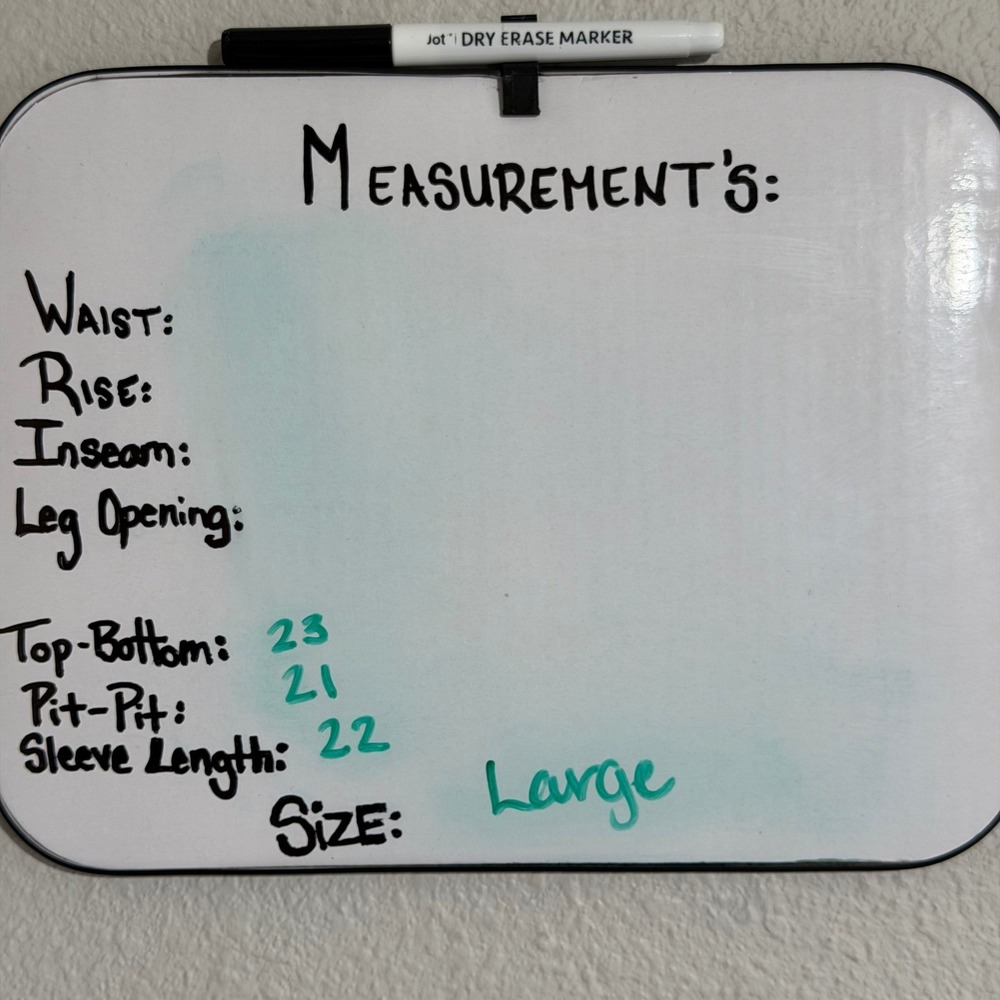 Jot™ DRY ERASE MARKER
MEASUREMENT'S:
WAIST:
RISE:
Inseam:
Leg Opening:
Top-Bottom: 23
Pit-Pit: 21
Sleeve Length: 22
SiZE: Large